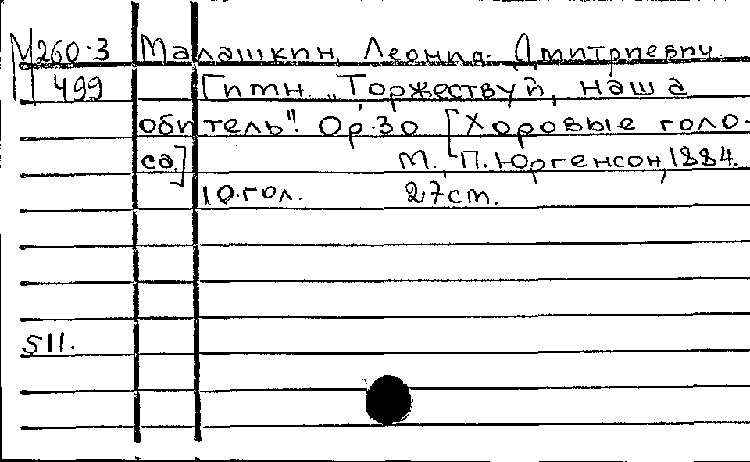 М260-3 Малашкин, Леонид Дмитриевич
П 499 Гимн "Торжествуй, наша
обитель". Op.30 [Хоровые голо-
са.] М., П. Юргенсон, 1884.
10.гол. 27 cm.
511.